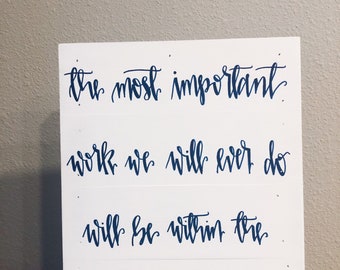 the most important
work we will ever do
will be within the